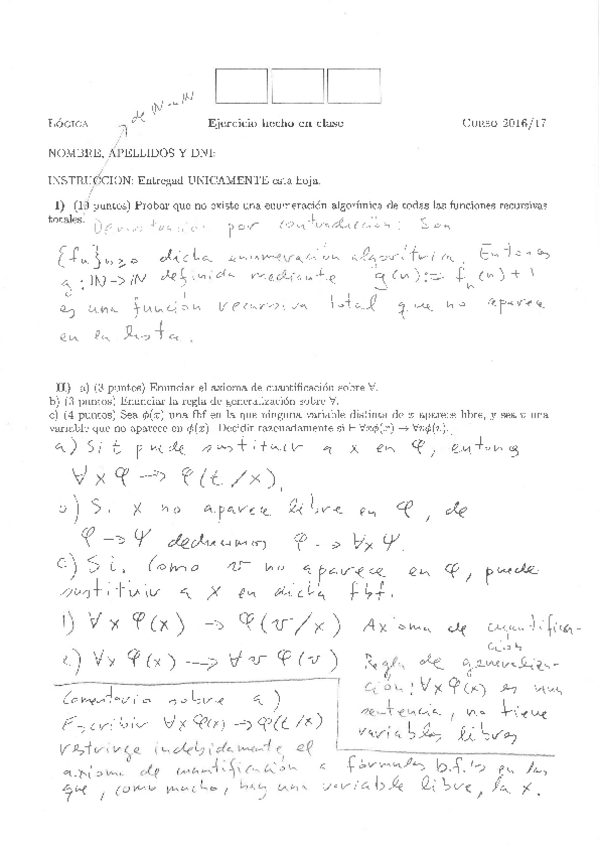 de ℕ en ℕ
LÓGICA Ejercicio hecho en clase CURSO 2016/17
NOMBRE, APELLIDOS Y DNI:
INSTRUCCION: Entregad UNICAMENTE esta hoja.
I) (10 puntos) Probar que no existe una enumeración algorímica de todas las funciones recursivas
totales.
Demostración por contradicción: Sea
{fn}n≥0 dicha enumeración algorítmica. Entonces
g: ℕ→ℕ definida mediante g(n):= fn(n)+1
es una función recursiva total que no aparece
en la lista.
II) a) (3 puntos) Enunciar el axioma de cuantificación sobre ∀.
b) (3 puntos) Enunciar la regla de generalización sobre ∀.
c) (4 puntos) Sea ϕ(x) una fbf en la que ninguna variable distinta de x aparece libre, y sea v una
variable que no aparece en ϕ(x). Decidir razonadamente si ⊢ ∀xϕ(x) → ∀vϕ(v).
a) Si t puede sustituir a x en φ, entonces
∀x φ → φ(t/x).
b) Si x no aparece libre en φ, de
φ → ψ deducimos φ → ∀x ψ.
c) Sí. Como v no aparece en φ, puede
sustituir a x en dicha fbf.
1) ∀x φ(x) → φ(v/x) Axioma de cuantificación
2) ∀x φ(x) → ∀v φ(v) Regla de generalización:
∀x φ(x) es una
sentencia, no tiene
variables libres
Comentario sobre a)
Escribir ∀x φ(x) → φ(t/x)
restringe indebidamente el
axioma de cuantificación a fórmulas b.f.'s en las
que, como mucho, hay una variable libre, la x.